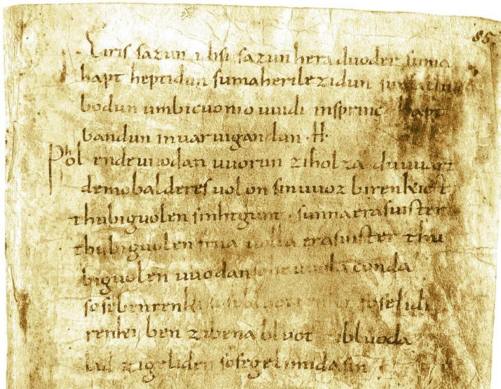 85
Eiris sazun idisi sazun hera duoder suma
hapt heptidun suma heri lezidun suma clu
bodun umbi cuonio uuidi insprinc hapt
bandun inuar uigandun .H.
Phol ende uuodan uuorun zi holza du uuart
demo balderes uolon sin uuoz birenkict
thu biguolen sinhtgunt . sunna era suister
thu biguolen friia uolla era suister thu
biguolen uuodan so he uuola conda
sose benrenki sose bluotrenki sose lidi
renki ben zi bena bluot zi bluoda
lid zi geliden sose gelimida sin